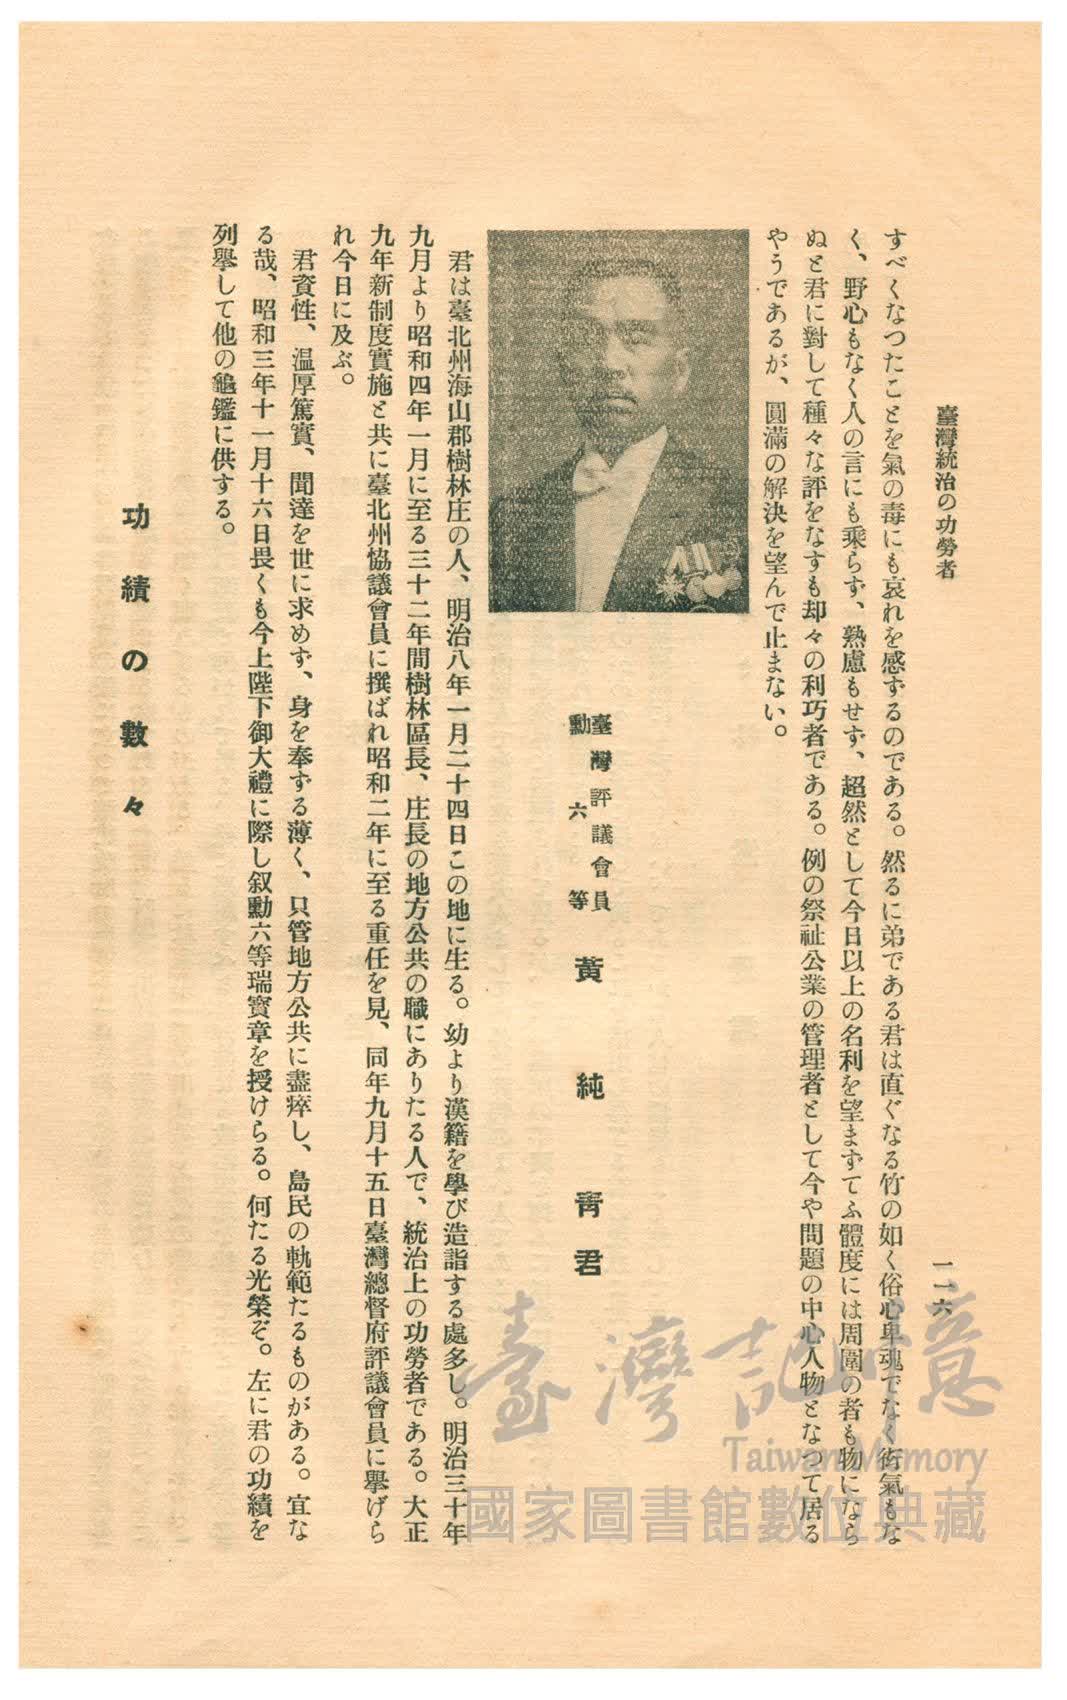 臺灣統治の功勞者
一一六
すべくなつたことを氣の毒にも哀れを感ずるのである。然るに弟である君は直ぐなる竹の如く俗心卑魂でなく術氣もな
く、野心もなく人の言にも乘らず、熟慮もせず、超然として今日以上の名利を望まずてふ體度には周圍の者も物になら
ぬと君に對して種々な評をなすも却々の利巧者である。例の祭祉公業の管理者として今や問題の中心人物となつて居る
やうであるが、圓滿の解決を望んで止まない。
臺灣評議會員
勳六等
黃純靑君
君は臺北州海山郡樹林庄の人、明治八年一月二十四日この地に生る。幼より漢籍を學び造詣する處多し。明治三十年
九月より昭和四年一月に至る三十二年間樹林區長、庄長の地方公共の職にありたる人で、統治上の功勞者である。大正
九年新制度實施と共に臺北州協議會員に撰ばれ昭和二年に至る重任を見、同年九月十五日臺灣總督府評議會員に擧げら
れ今日に及ぶ。
君資性、温厚篤實、聞達を世に求めず、身を奉ずる薄く、只管地方公共に盡瘁し、島民の軌範たるものがある。宜な
る哉、昭和三年十一月十六日畏くも今上陛下御大禮に際し叙勳六等瑞寶章を授けらる。何たる光榮ぞ。左に君の功績を
列擧して他の龜鑑に供する。
功績の數々
臺灣記憶
Taiwan Memory
國家圖書館數位典藏